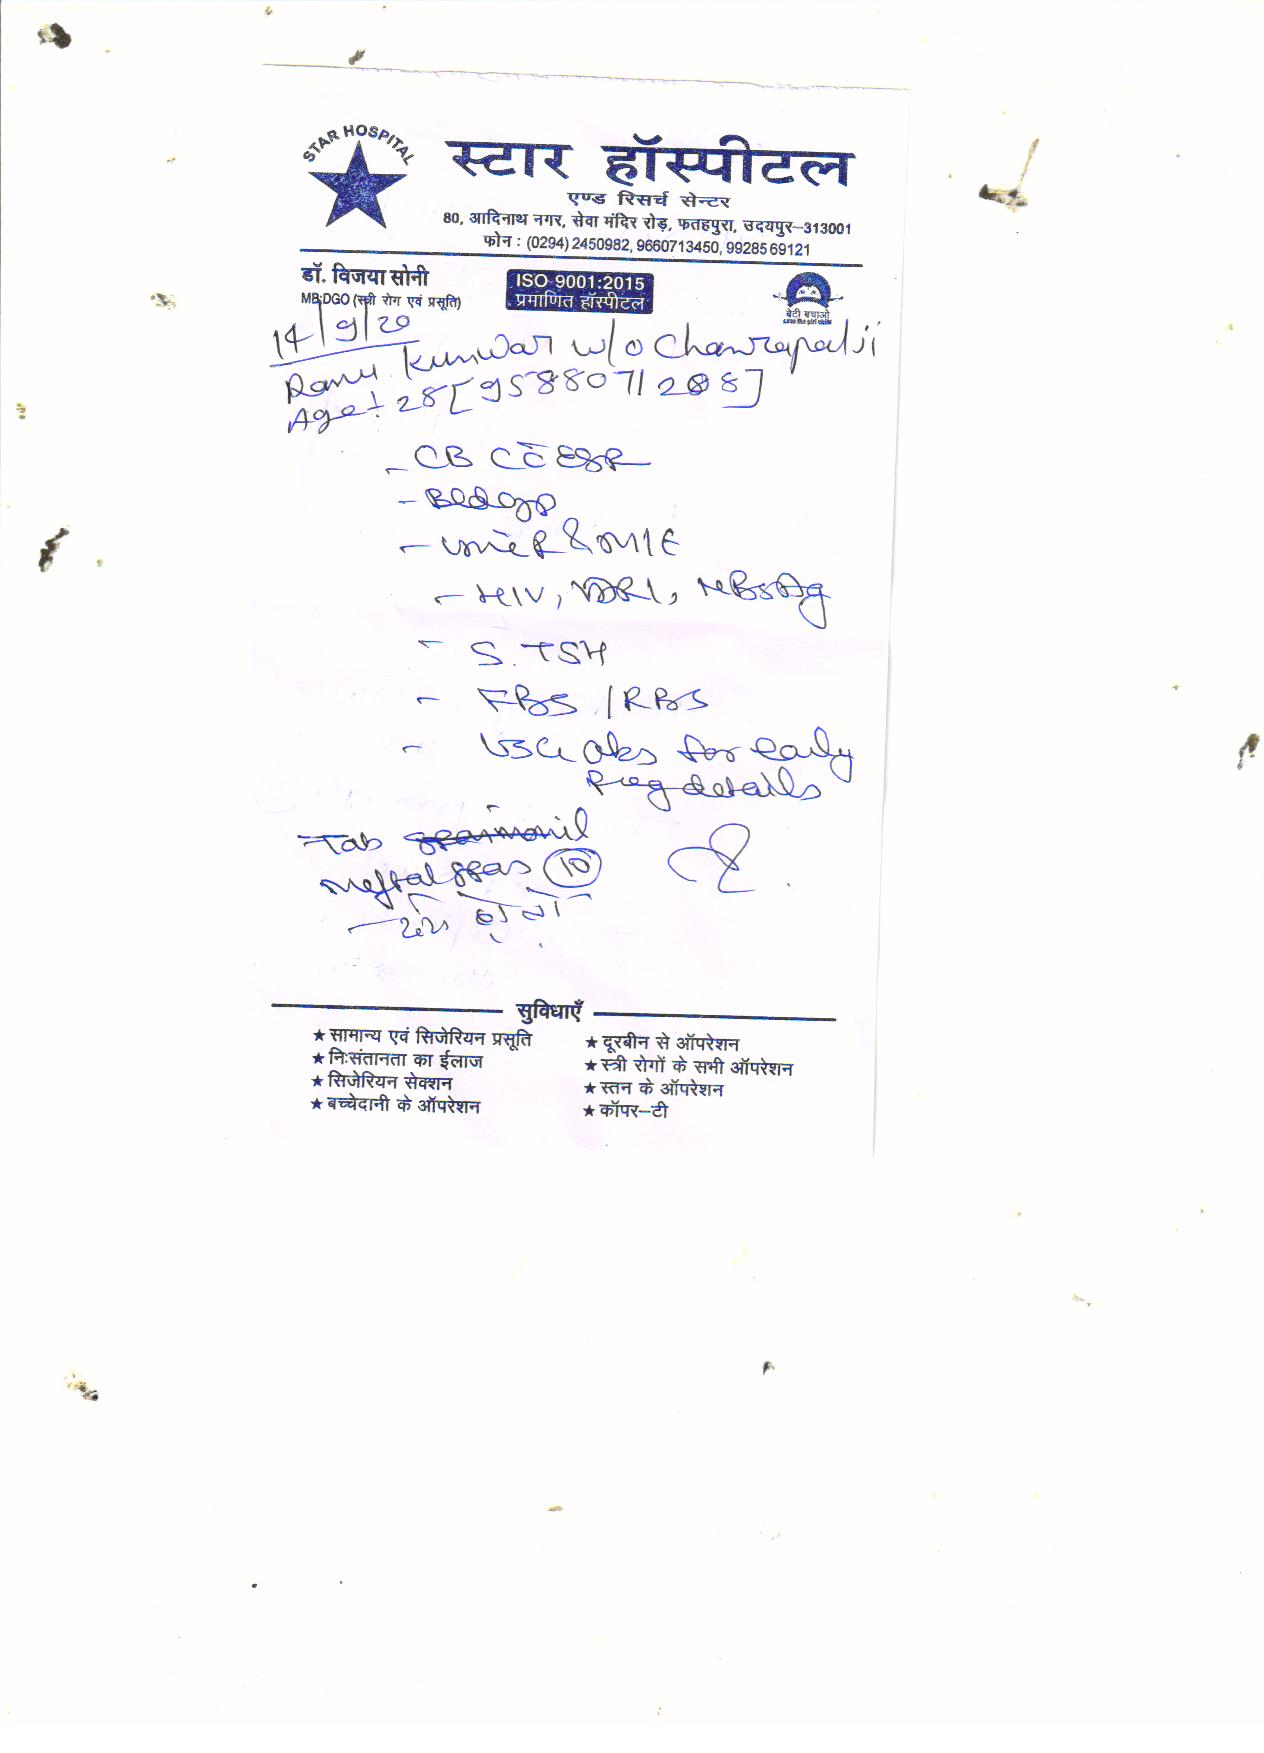 STAR HOSPITAL
स्टार हॉस्पीटल
एण्ड रिसर्च सेन्टर
80, आदिनाथ नगर, सेवा मंदिर रोड़, फतहपुरा, उदयपुर–313001
फोन : (0294) 2450982, 9660713450, 9928569121
डॉ. विजया सोनी
MB;DGO (स्त्री रोग एवं प्रसूति)
ISO 9001:2015
प्रमाणित हॉस्पीटल
बेटी बचाओ
save the girl child
14/9/20
Kunwar w/o
Age : 28 [9588071288]
- CBC ESR
- Bldgp
- Urine R & M/E
- HIV, VDRL, HBsAg
- S. TSH
- FBS / RBS
- USG obs for early
Preg details
Tab
Meftal spas (10)
सुविधाएँ
★ सामान्य एवं सिजेरियन प्रसूति
★ निःसंतानता का ईलाज
★ सिजेरियन सेक्शन
★ बच्चेदानी के ऑपरेशन
★ दूरबीन से ऑपरेशन
★ स्त्री रोगों के सभी ऑपरेशन
★ स्तन के ऑपरेशन
★ कॉपर–टी